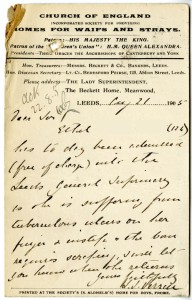 CHURCH OF ENGLAND
(INCORPORATED SOCIETY FOR PROVIDING)
HOMES FOR WAIFS AND STRAYS.
Patron—HIS MAJESTY THE KING.
Patron of the "Children's Union": H.M. QUEEN ALEXANDRA.
Presidents: THE ARCHBISHOPS OF CANTERBURY AND YORK
Hon. Treasurers—MESSRS. BECKETT & CO., BANKERS, LEEDS.
Hon. Diocesan Secretary—LT.-CL. BERESFORD PEIRSE, LEEDS.
Please address—THE LADY SUPERINTENDENT,
The Beckett Home, Meanwood,
LEEDS, Aug 21 1905
ack
22.8.05
Dear Sir
Ethel
has to day been admitted
(free of charge) into the
Leeds General Infirmary
as she is suffering from
tuberculous ulcers on her
finger & instep & the bone
requires scraping, I will let
you know when she returns
yours faithfully
PRINTED AT THE SOCIETY'S ST. ALDHELM'S HOME FOR BOYS, FROME.